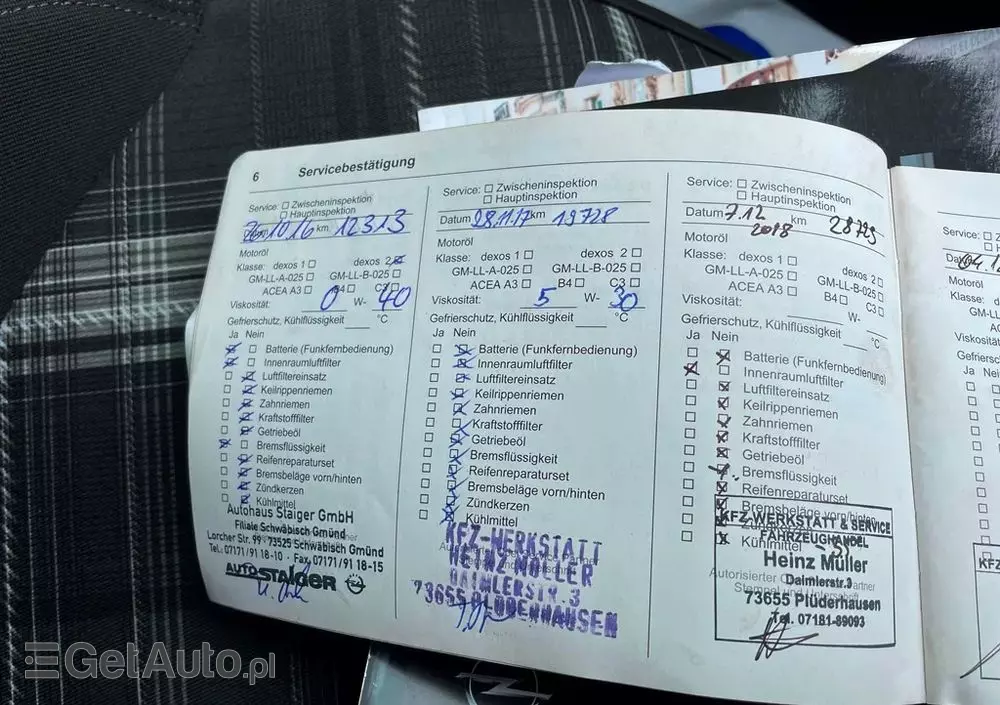 6 Servicebestätigung
Service: Zwischeninspektion
Hauptinspektion
26.10.16 km 12313
Motoröl
Klasse: dexos 1 dexos 2
GM-LL-A-025 GM-LL-B-025
ACEA A3 B4 C3
Viskosität: 0 W- 40
Gefrierschutz, Kühlflüssigkeit °C
Ja Nein
Batterie (Funkfernbedienung)
Innenraumluftfilter
Luftfiltereinsatz
Keilrippenriemen
Zahnriemen
Kraftstofffilter
Getriebeöl
Bremsflüssigkeit
Reifenreparaturset
Bremsbeläge vorn/hinten
Zündkerzen
Kühlmittel
Autohaus Staiger GmbH
Filiale Schwäbisch Gmünd
Lorcher Str. 99 · 73525 Schwäbisch Gmünd
Tel.: 07171/91 18-10 · Fax 07171/91 18-15
AUTO STAIGER
Service: Zwischeninspektion
Hauptinspektion
Datum 28.11.17 km 19728
Motoröl
Klasse: dexos 1 dexos 2
GM-LL-A-025 GM-LL-B-025
ACEA A3 B4 C3
Viskosität: 5 W- 30
Gefrierschutz, Kühlflüssigkeit °C
Ja Nein
Batterie (Funkfernbedienung)
Innenraumluftfilter
Luftfiltereinsatz
Keilrippenriemen
Zahnriemen
Kraftstofffilter
Getriebeöl
Bremsflüssigkeit
Reifenreparaturset
Bremsbeläge vorn/hinten
Zündkerzen
Kühlmittel
KFZ-WERKSTATT
HEINZ MÜLLER
DAIMLERSTR. 3
73655 PLÜDERHAUSEN
Service: Zwischeninspektion
Hauptinspektion
Datum 7.12 km 28795
2018
Motoröl
Klasse: dexos 1 dexos 2
GM-LL-A-025 GM-LL-B-025
ACEA A3 B4 C3
Viskosität: W-
Gefrierschutz, Kühlflüssigkeit °C
Ja Nein
Batterie (Funkfernbedienung)
Innenraumluftfilter
Luftfiltereinsatz
Keilrippenriemen
Zahnriemen
Kraftstofffilter
Getriebeöl
Bremsflüssigkeit
Reifenreparaturset
Bremsbeläge vorn/hinten
Kühlmittel
KFZ WERKSTATT & SERVICE
FAHRZEUGHANDEL
Heinz Müller
Autorisierter
Daimlerstr.3
73655 Plüderhausen
Tel. 07181-89093
Service:
Motoröl
Klasse:
Viskosität
Ja Nein
GetAuto.pl